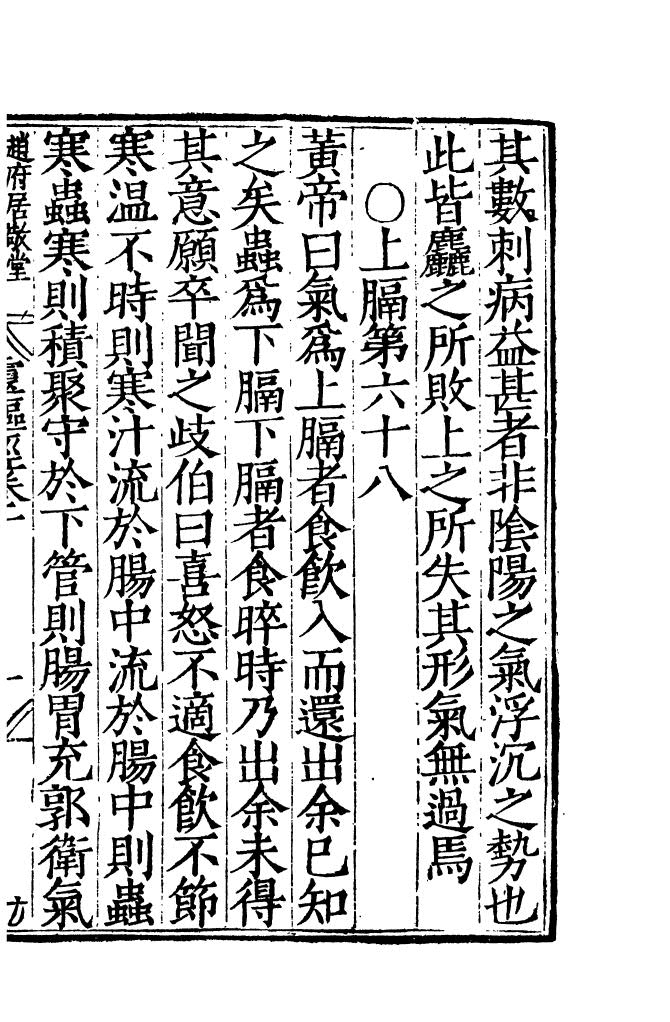 其數刺病益甚者非陰陽之氣浮沉之勢也
此皆麤之所敗上之所失其形氣無過焉
○上膈第六十八
黃帝曰氣爲上膈者食飲入而還出余已知
之矣蟲爲下膈下膈者食晬時乃出余未得
其意願卒聞之歧伯曰喜怒不適食飲不節
寒溫不時則寒汁流於腸中流於腸中則蟲
寒蟲寒則積聚守於下管則腸胃充郭衛氣
趙府居敬堂